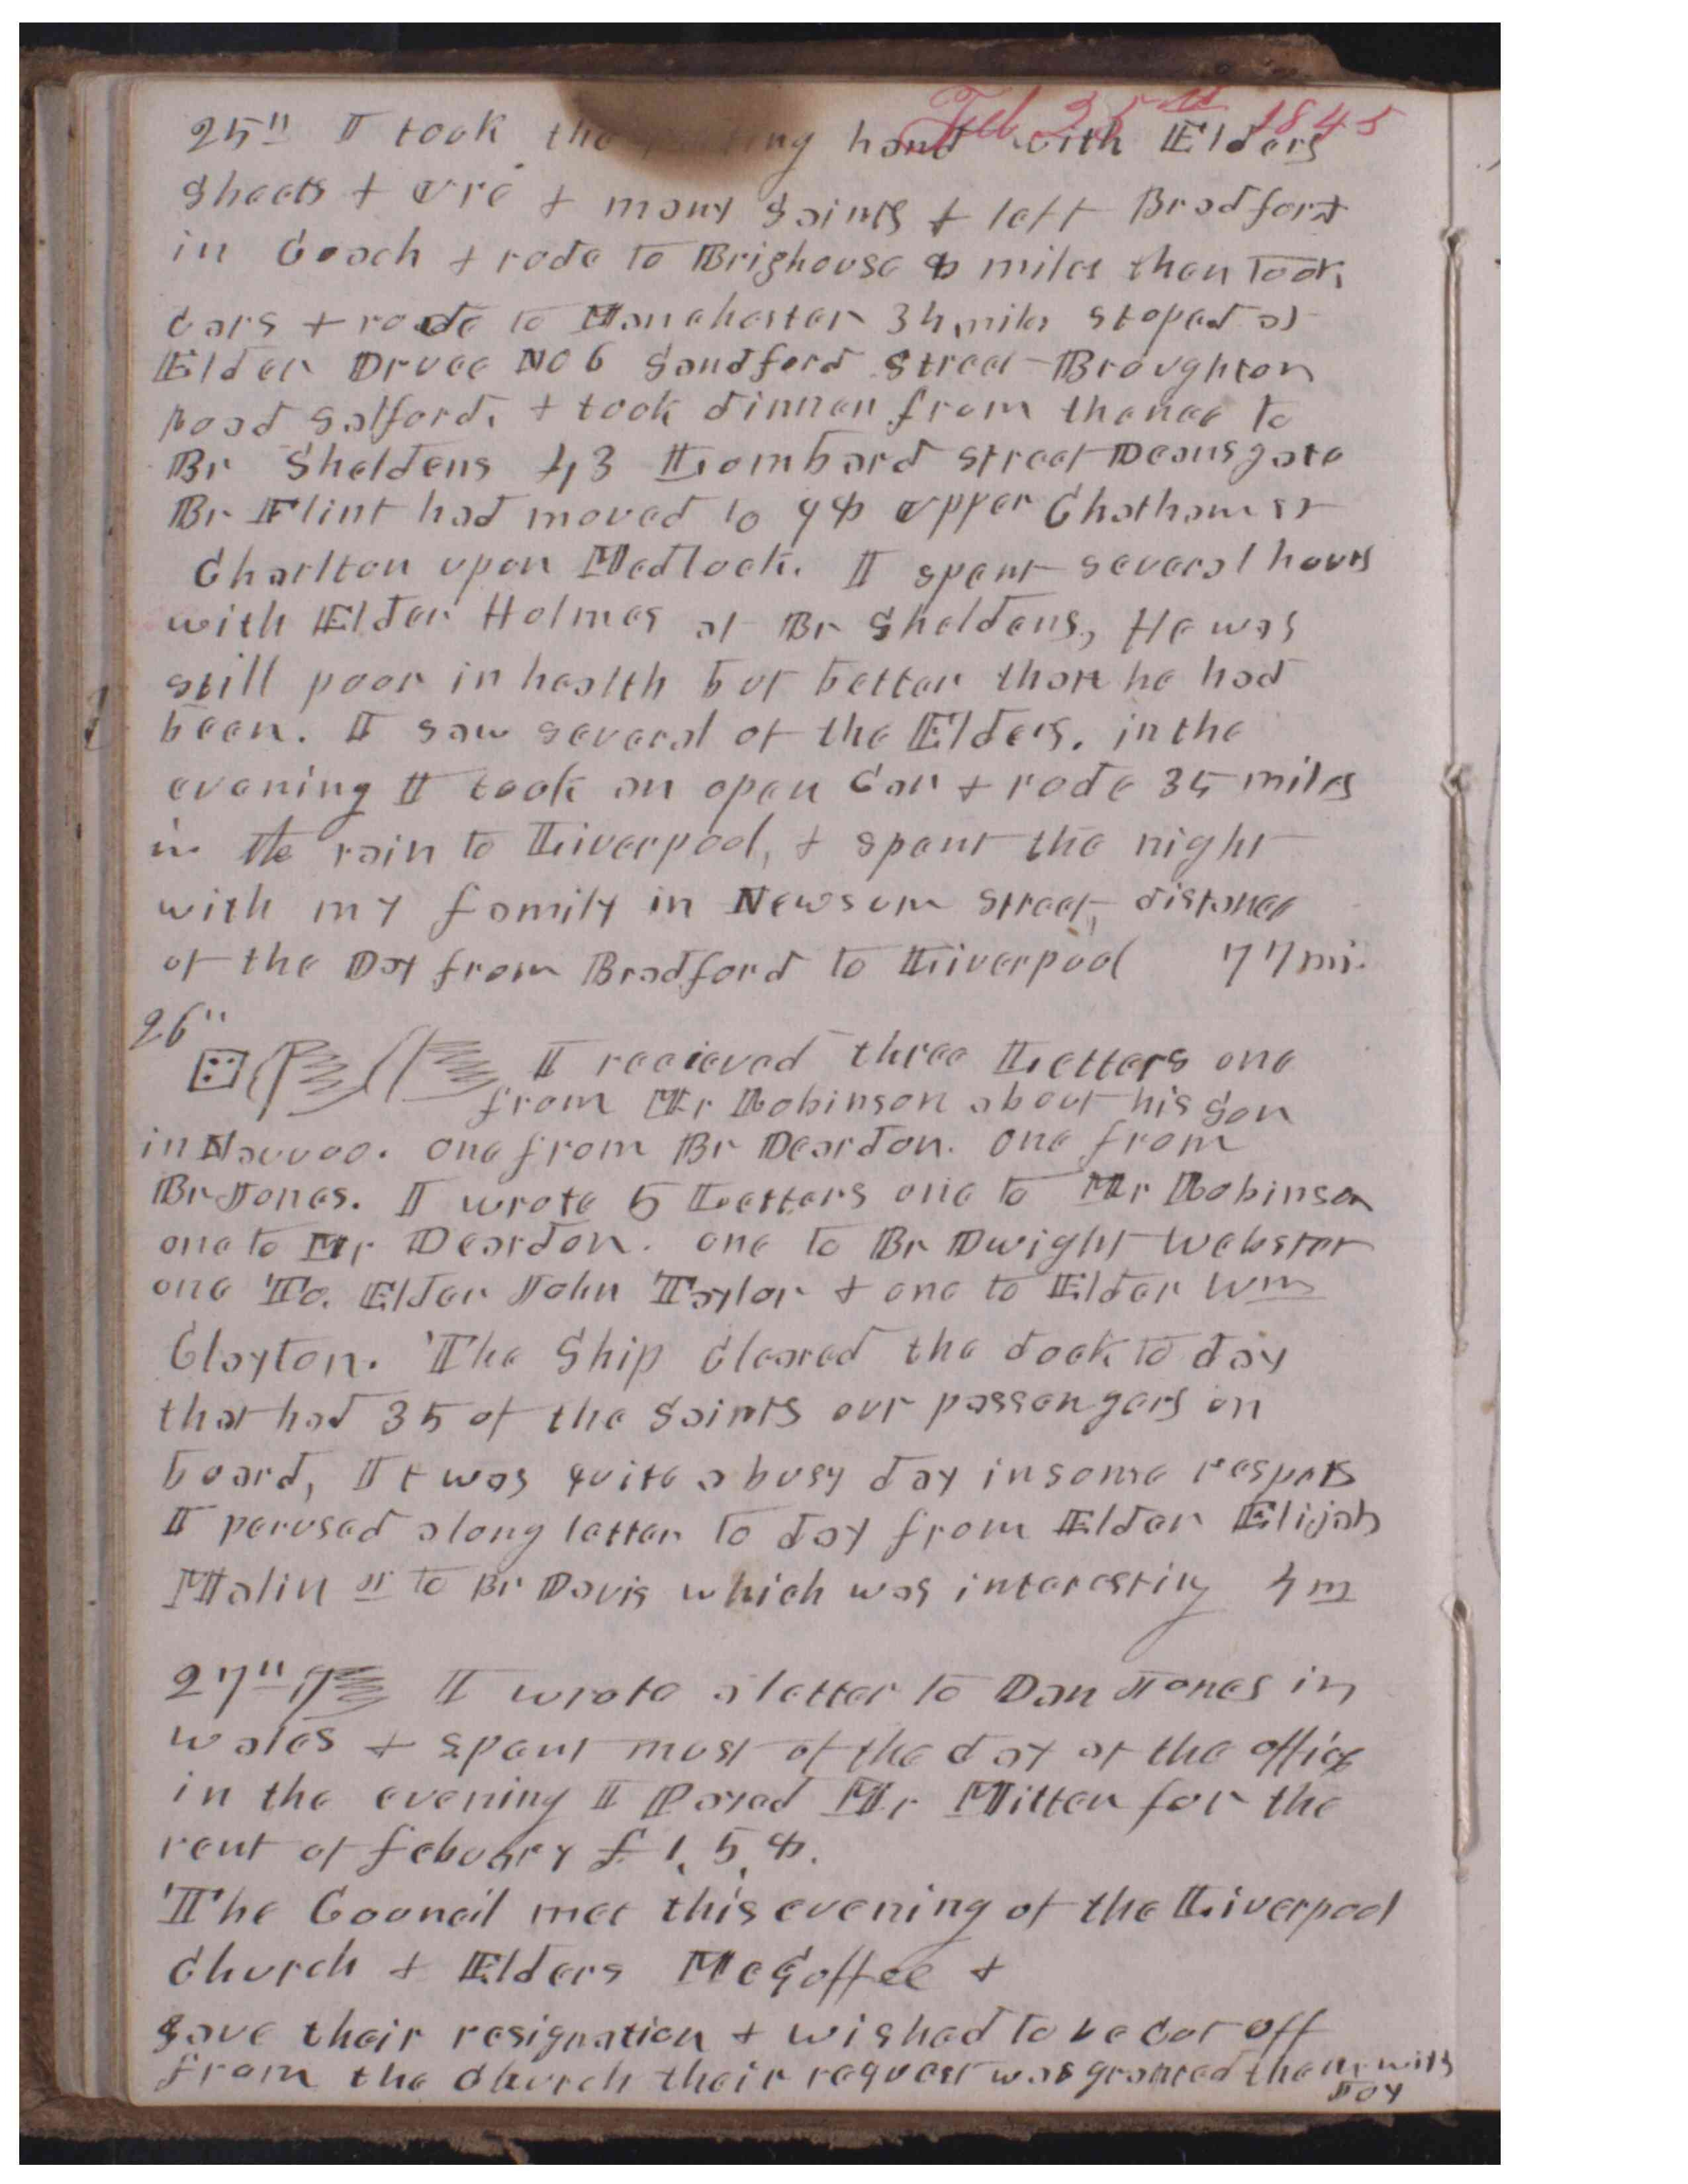 Feb 25th 1845
25" I took the parting hand with Elders
Sheets + Ure + many Saints + left Bradford
in Coach + rode to Brighouse 8 miles then took
Cars + rode to Manchester 34 miles stoped at
Elder Druce No 6 Sandford Street Broughton
Road Salford. + took dinner from thence to
Br Sheldens 43 Lombard street Deansgate
Br Flint had moved to 98 Upper Chatham st
Charlton upon Medlock. I spent several hours
with Elder Holmes at Br Sheldens, He was
still poor in health but better than he had
been. I saw several of the Elders. in the
evening I took an open Car + rode 35 miles
in the rain to Liverpool, + spent the night
with my family in Newsum street, distance
of the Day from Bradford to Liverpool 77 mi.
26"
I recieved three Letters one
from Mr Robinson about his Son
in Nauvoo. one from Br Deardon. one from
Br Jones. I wrote 5 Letters one to Mr Robinson
one to Mr Deardon. one to Br Dwight Webster
one To. Elder John Taylor + one to Elder Wm
Clayton. The Ship cleared the dock to day
that had 35 of the Saints our passengers on
board, It was quite a busy day in some respets
I perused a long letter to day from Elder Elijah
Malin sr to Br Davis which was interestiy 4 m
27" I wrote a letter to Dan Jones in
wales + spent most of the day at the office
in the evening I Payed Mr Mitten for the
rent of febuary £1,5,8.
The Council met this evening of the Liverpool
Church + Elders McGoffee +
gave their resignation + wished to be cut off
from the church their request was granted them with
Joy